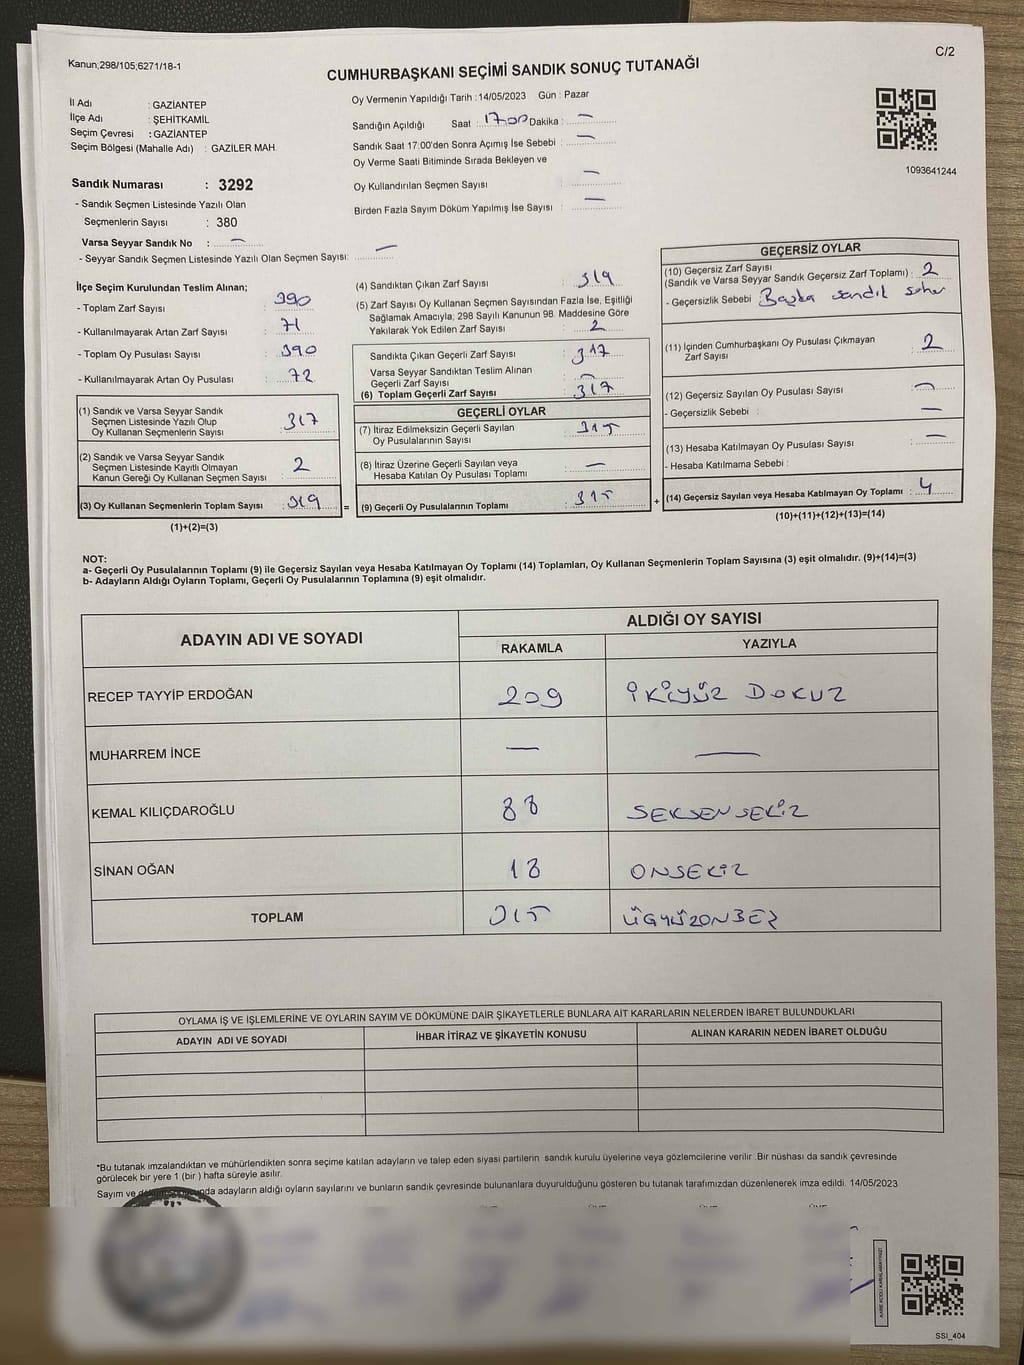 Kanun,298/105;6271/18-1
C/2
CUMHURBAŞKANI SEÇİMİ SANDIK SONUÇ TUTANAĞI
İl Adı : GAZİANTEP
İlçe Adı : ŞEHİTKAMİL
Seçim Çevresi : GAZİANTEP
Seçim Bölgesi (Mahalle Adı) : GAZİLER MAH.
Oy Vermenin Yapıldığı Tarih : 14/05/2023 Gün : Pazar
Sandığın Açıldığı Saat : 17:00 Dakika : —
Sandık Saat 17:00'den Sonra Açımış İse Sebebi : —
Oy Verme Saati Bitiminde Sırada Bekleyen ve
Oy Kullandırılan Seçmen Sayısı : —
Birden Fazla Sayım Döküm Yapılmış İse Sayısı : —
1093641244
Sandık Numarası : 3292
- Sandık Seçmen Listesinde Yazılı Olan
Seçmenlerin Sayısı : 380
Varsa Seyyar Sandık No : —
- Seyyar Sandık Seçmen Listesinde Yazılı Olan Seçmen Sayısı: —
İlçe Seçim Kurulundan Teslim Alınan;
- Toplam Zarf Sayısı : 390
- Kullanılmayarak Artan Zarf Sayısı : 71
- Toplam Oy Pusulası Sayısı : 390
- Kullanılmayarak Artan Oy Pusulası : 72
(1) Sandık ve Varsa Seyyar Sandık
Seçmen Listesinde Yazılı Olup
Oy Kullanan Seçmenlerin Sayısı : 317
(2) Sandık ve Varsa Seyyar Sandık
Seçmen Listesinde Kayıtlı Olmayan
Kanun Gereği Oy Kullanan Seçmen Sayısı : 2
(3) Oy Kullanan Seçmenlerin Toplam Sayısı : 319 =
(1)+(2)=(3)
(4) Sandıktan Çıkan Zarf Sayısı : 319
(5) Zarf Sayısı Oy Kullanan Seçmen Sayısından Fazla İse, Eşitliği
Sağlamak Amacıyla; 298 Sayılı Kanunun 98. Maddesine Göre
Yakılarak Yok Edilen Zarf Sayısı : 2
Sandıkta Çıkan Geçerli Zarf Sayısı : 317
Varsa Seyyar Sandıktan Teslim Alınan
Geçerli Zarf Sayısı : —
(6) Toplam Geçerli Zarf Sayısı : 317
GEÇERLİ OYLAR
(7) İtiraz Edilmeksizin Geçerli Sayılan
Oy Pusulalarının Sayısı : 315
(8) İtiraz Üzerine Geçerli Sayılan veya
Hesaba Katılan Oy Pusulası Toplamı : —
(9) Geçerli Oy Pusulalarının Toplamı : 315 +
GEÇERSİZ OYLAR
(10) Geçersiz Zarf Sayısı
(Sandık ve Varsa Seyyar Sandık Geçersiz Zarf Toplamı) : 2
- Geçersizlik Sebebi : Başka sandık
(11) İçinden Cumhurbaşkanı Oy Pusulası Çıkmayan
Zarf Sayısı : 2
(12) Geçersiz Sayılan Oy Pusulası Sayısı : —
- Geçersizlik Sebebi : —
(13) Hesaba Katılmayan Oy Pusulası Sayısı : —
- Hesaba Katılmama Sebebi :
(14) Geçersiz Sayılan veya Hesaba Katılmayan Oy Toplamı : 4
(10)+(11)+(12)+(13)=(14)
NOT:
a- Geçerli Oy Pusulalarının Toplamı (9) ile Geçersiz Sayılan veya Hesaba Katılmayan Oy Toplamı (14) Toplamları, Oy Kullanan Seçmenlerin Toplam Sayısına (3) eşit olmalıdır. (9)+(14)=(3)
b- Adayların Aldığı Oyların Toplamı, Geçerli Oy Pusulalarının Toplamına (9) eşit olmalıdır.
ADAYIN ADI VE SOYADI ALDIĞI OY SAYISI
RAKAMLA YAZIYLA
RECEP TAYYİP ERDOĞAN 209 İKİYÜZ DOKUZ
MUHARREM İNCE — —
KEMAL KILIÇDAROĞLU 88 SEKSENSEKİZ
SİNAN OĞAN 18 ONSEKİZ
TOPLAM 315 ÜÇYÜZONBEŞ
OYLAMA İŞ VE İŞLEMLERİNE VE OYLARIN SAYIM VE DÖKÜMÜNE DAİR ŞİKAYETLERLE BUNLARA AİT KARARLARIN NELERDEN İBARET BULUNDUKLARI
ADAYIN ADI VE SOYADI İHBAR İTİRAZ VE ŞİKAYETİN KONUSU ALINAN KARARIN NEDEN İBARET OLDUĞU
*Bu tutanak imzalandıktan ve mühürlendikten sonra seçime katılan adayların ve talep eden siyasi partilerin sandık kurulu üyelerine veya gözlemcilerine verilir .Bir nüshası da sandık çevresinde
görülecek bir yere 1 (bir ) hafta süreyle asılır.
Sayım ve adayların aldığı oyların sayılarını ve bunların sandık çevresinde bulunanlara duyurulduğunu gösteren bu tutanak tarafımızdan düzenlenerek imza edildi. 14/05/2023
SSI_404